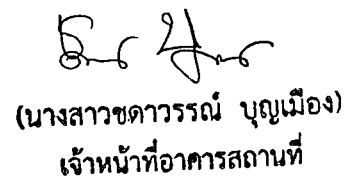 (นางสาวชดาวรรณ์ บุญเมือง)
เจ้าหน้าที่อาคารสถานที่